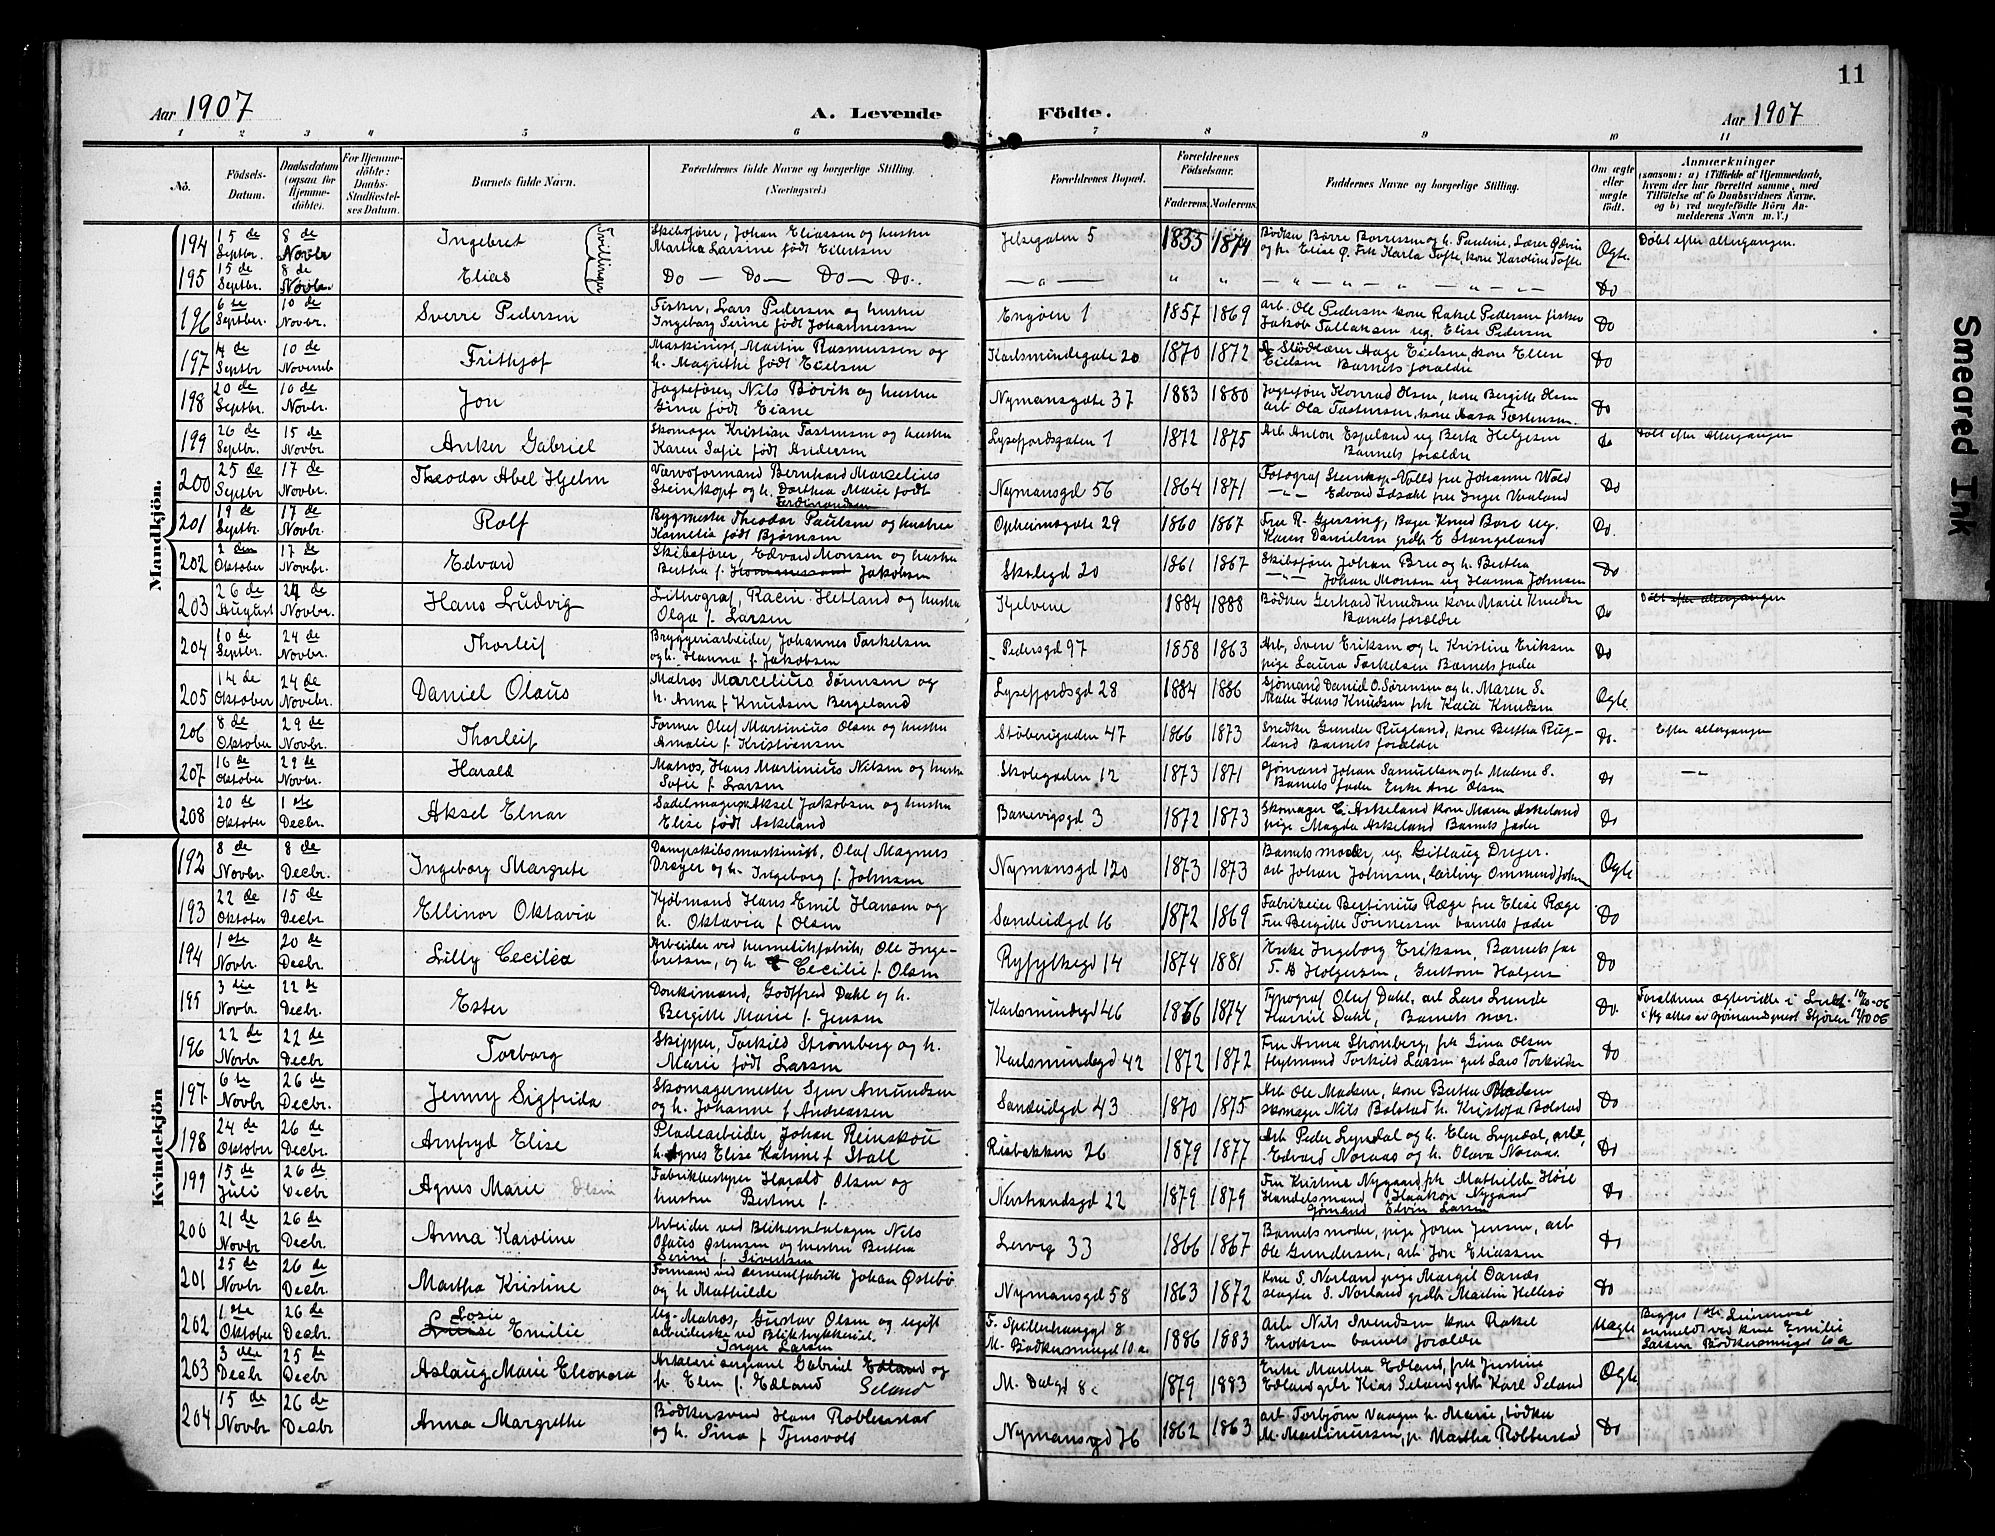 11
Aar 1907
A. Levende Födte.
Aar 1907
1 2 3 4 5 6 7 8 9 10 11
No.
Födsels-Datum.
Daabsdatum (ogsaa for Hjemme-döbte).
For Hjemme-döbte: Daabs-Stadfæstel-ses Datum.
Barnets fulde Navn.
Forældrenes fulde Navne og borgerlige Stilling. (Næringsvei.)
Forældrenes Bopæl.
Forældrenes Födselsaar.
Faderens. Moderens.
Faddernes Navne og borgerlige Stilling.
Om ægte eller uægte födt.
Anmærkninger (saasom: a) i Tilfælde af Hjemmedaab, hvem der har forrettet samme, med Tilföielse af to Daabsvidners Navne, og b) ved uægtefödte Börn Anmelderens Navn m. V.)
Mandkjön.
194 15 de Septbr. 8 de Novbr Ingebret Tvillinger Skibsfører, Johan Eliassen og hustru Martha Larsine født Eilertsen Jelsegaten 5 1874 Bødker Børre Børresen og h. Pauline, Ægte. Døbt efter altergangen.
195 15 de Septbr. 8 de Novbr. Elias Do — Do — Do — Do. Do
196 6 te Septbr. 10 de Novbr. Sverre Pedersen Fisker, Lars Pedersen og hustru Ingeborg Serine født Johannessen Engøen 1 1857 1869 Arb. Ole Pedersen kone Rakel Pedersen fisker Jakob Tallaksen ug. Elise Pedersen Do
197 4 de Septbr 10 de Novemb Frithjof Maskinist, Martin Rasmussen og h. Magrethe født Eielsen Karlsmindegate 20 1870 1872 Aage Eielsen, kone Ellen Eielsen Barnets forældre Do
198 20 de Septbr. 10 de Novbr. Jon Jagtefører, Nils Bøvik og hustru Gina født Eiane Nymansgate 37 1883 1880 Jagtefører Konrad Olsen, kone Bergitte Olsen arb Ola Tastensen, kone Aasa Tastensen. Do
199 26 de Septbr. 15 de Novbr. Anker Gabriel Skomager Kristian Tastensen og hustru Karen Sofie født Andersen Lysefjordsgaten 1 1872 1875 Arb. Anton Espeland ug Berta Helgesen Barnets forældre Do Døbt efter Altergangen
200 25 de Septbr 17 de Novbr. Theodor Abel Hjelm Værvsformand Bernhard Marcelius Steinkopf og h. Dorthea Marie født Ferdinandsen Nymansgd 56 1864 1871 Fotograf Steinkop-Vold fru Johanne Wold Edvard Idsahl fru Inger Vaaland Do
201 19 de Septbr. 17 de Novbr. Rolf Bygmester Theodor Paulsen og hustru Kamelia født Bjørnsen Opheimsgate 29 1860 1867 Fru R. Gjersing, Bager Knud Bore ug. Karen Danielsen grdb E Stangeland Do.
202 2 den Oktober 17 de Novbr. Edvard Skibsfører, Edvard Monsen og hustru Bertha f. Jakobsen Skolegd 20 1861 1867 Skibsfører Johan Bru og h. Bertha Johan Monsen ug Hanna Johnsen Do
203 26 de August 24 de Novbr. Hans Ludvig Lithograf, Racin Hetland og hustru Olga f. Larsen Kjelvene 1884 1888 Bødker Gerhard Knudsen kone Marie Knudsen Barnets forældre Do Døbt efter altergangen
204 10 de Septbr. 24 de Novbr. Thorleif Bryggeriarbeider, Johannes Torkelsen og h. Hanna f. Jakobsen Pedersgd 97 1858 1863 Arb, Svere Eriksen og h. Kristine Eriksen pige Laura Torkelsen Barnets fader Do
205 14 de Oktober 24 de Novebr. Daniel Olaus Matros Marcelius Sørensen og h. Anna f Knudsen Bergeland Lysefjordsgd 28 1884 1886 Sjømand Daniel O. Sørensen og h. Maren S. Maler Hans Knudsen frk Kaia Knudsen Ægte.
206 8 de Oktober 29 de Novbr. Thorleif Former Olaf Martinius Olsen og hustru Amalie f. Kristensen Støberigaden 47 1866 1873 Snedker Gunder Rugland, kone Bertha Rug-land Barnets forældre Do. Efter altergangen
207 16 de Oktober 29 de Novbr. Harald Matros, Hans Martinius Nilsen og hustru Sofie f. Larsen Skolegaden 12 1873 1871 Sjømand Johan Samuelsen og h. Malene S. Barnets fader Enke Ane Olsen Do
208 20 de Oktober 1 ste Decbr. Aksel Elnar Sadelmager Aksel Jakobsen og hustru Elise født Askeland Banevigsgd 3 1872 1873 Skomager E. Askeland kone Maren Askeland pige Magda Askeland Barnets fader Do
Kvindekjön
192 8 de Novbr. 8 de Decbr. Ingeborg Margrete Dampskibsmaskinist, Olaf Magnus Dreyer og h. Ingeborg f. Johnsen Nymansgd 120 1873 1873 Barnets moder, ug. Gitlaug Dreyer. arb Johan Johnsen, Ommund Johnsen Ægte
193 22 de Oktober 15 de Decbr Ellinor Oktavia Kjøbmand Hans Emil Hansen og h. Oktavia f Olsen Sandeidgd 16 1872 1869 Fabrikeier Bertinius Ræge fru Elise Ræge Fru Bergitte Tønnessen barnets fader Do
194 1 ste Novbr. 20 de Decbr. Lilly Cecilia Arbeider ved hermetikfabrik, Ole Inge-bretsen, og h. Cecilie f. Olsen Ryfylkegd 14 1874 1881 Enke Ingeborg Eriksen, Barnets far T. B Holgersen, Guttorm Holgersen Do
195 3 die Novbr. 22 de Decbr. Ester Donkimand, Godtfred Dahl og h. Bergitte Marie f. Jensen Karlsmindegd 46 1876 1874 Typograf Olaf Dahl, arb Lars Lunde Harriet Dahl, Barnets mor. Do.
196 22 de Novbr 22 de Decbr Torborg Skipper, Torkild Strømberg og h. Marie født Larsen Karlsmindegd 42 1872 1872 Fru Anna Strømberg, frk Gina Olsen Torkild Larsen Lars Torkildsen Do
197. 6 te Novbr 26 de Decbr. Jenny Sigfrida Skomagermester Sjur Amundsen og h. Johanne f Andreassen Sandeidgd 43 1870 1875 Arb Ole Madsen, kone Bertha Madsen skomager Nils Bolstad h. Kristofa Bolstad Do
198 24 de Oktober 26 de Decbr. Arnfryd Elise Pladearbeider, Johan Reinskou h. Agnes Elise Katrine f Stall Risbakken 26 1879 1877 Arb Peder Lyndal og h. Elen Lyndal, arb. Edvard Noraas og h. Olava Noraas. Do
199 15 de Juli 26 de Decbr Agnes Marie Olsen Fabrikbestyrer Harald Olsen og hustru Bertine f. Nerstrandsgd 22 1879 1879 Fru Kristine Nygaard frk Mathilde Høie Handelsmand Haakon Nygaard Sjømand Edvin Larsen Do
200 21 de Novbr 26 de Decbr. Anna Karoline Arbeider ved Blikemballagen Nils Olaus Østensen og hustru Bertha Serine f. Sivertsen Lervig 33 1866 1867 Barnets moder, pige Joren Jensen, arb Ole Gundersen, arb Jon Eliassen Do
201 25 de Novbr 26 de Decbr. Martha Kristine Formand ved cementfabrik Johan Østebø og h Mathilde Nymansgd 58 1863 1872 Kone S. Norland pige Margit Oanes slagter S. Norland grdbr Martin Hellesø Do
202 1 ste Oktober 26 de Decbr. Losie Emilie Ug. Matros, Gustav Olsen og ugift arbeiderske ved Bliktrykkeriet. Inger Larsen F. Spillerhauggd 8 M. Bødkersmugd 10 a. 1886 1883 Arb Nils Svendsen kone Rakel Enoksen barnets forældre Uægte Begges 1ste anmeldt ved kone Emilie Larsen Bødkersmugd 10 a
203 3 die Decbr 25 de Decbr Aslaug Marie Eleonora sergeant Gabriel Edland og h. Elen f. Edland Seland M. Dalgd 8c 1879 1883 Enke Martha Edland, frk Justine Edland Kias Seland Karl Seland Ægte
204 15 de Novbr 26 de Decbr Anna Margrethe Bødkersvend Hans Robberstad og h. Sina f Tjensvold Nymansgd 76 1862 1863 arb Torbjørn Vaagen h. Marie, bødker M. Martinussen, p. Martha Robberstad Do
Smeared Ink